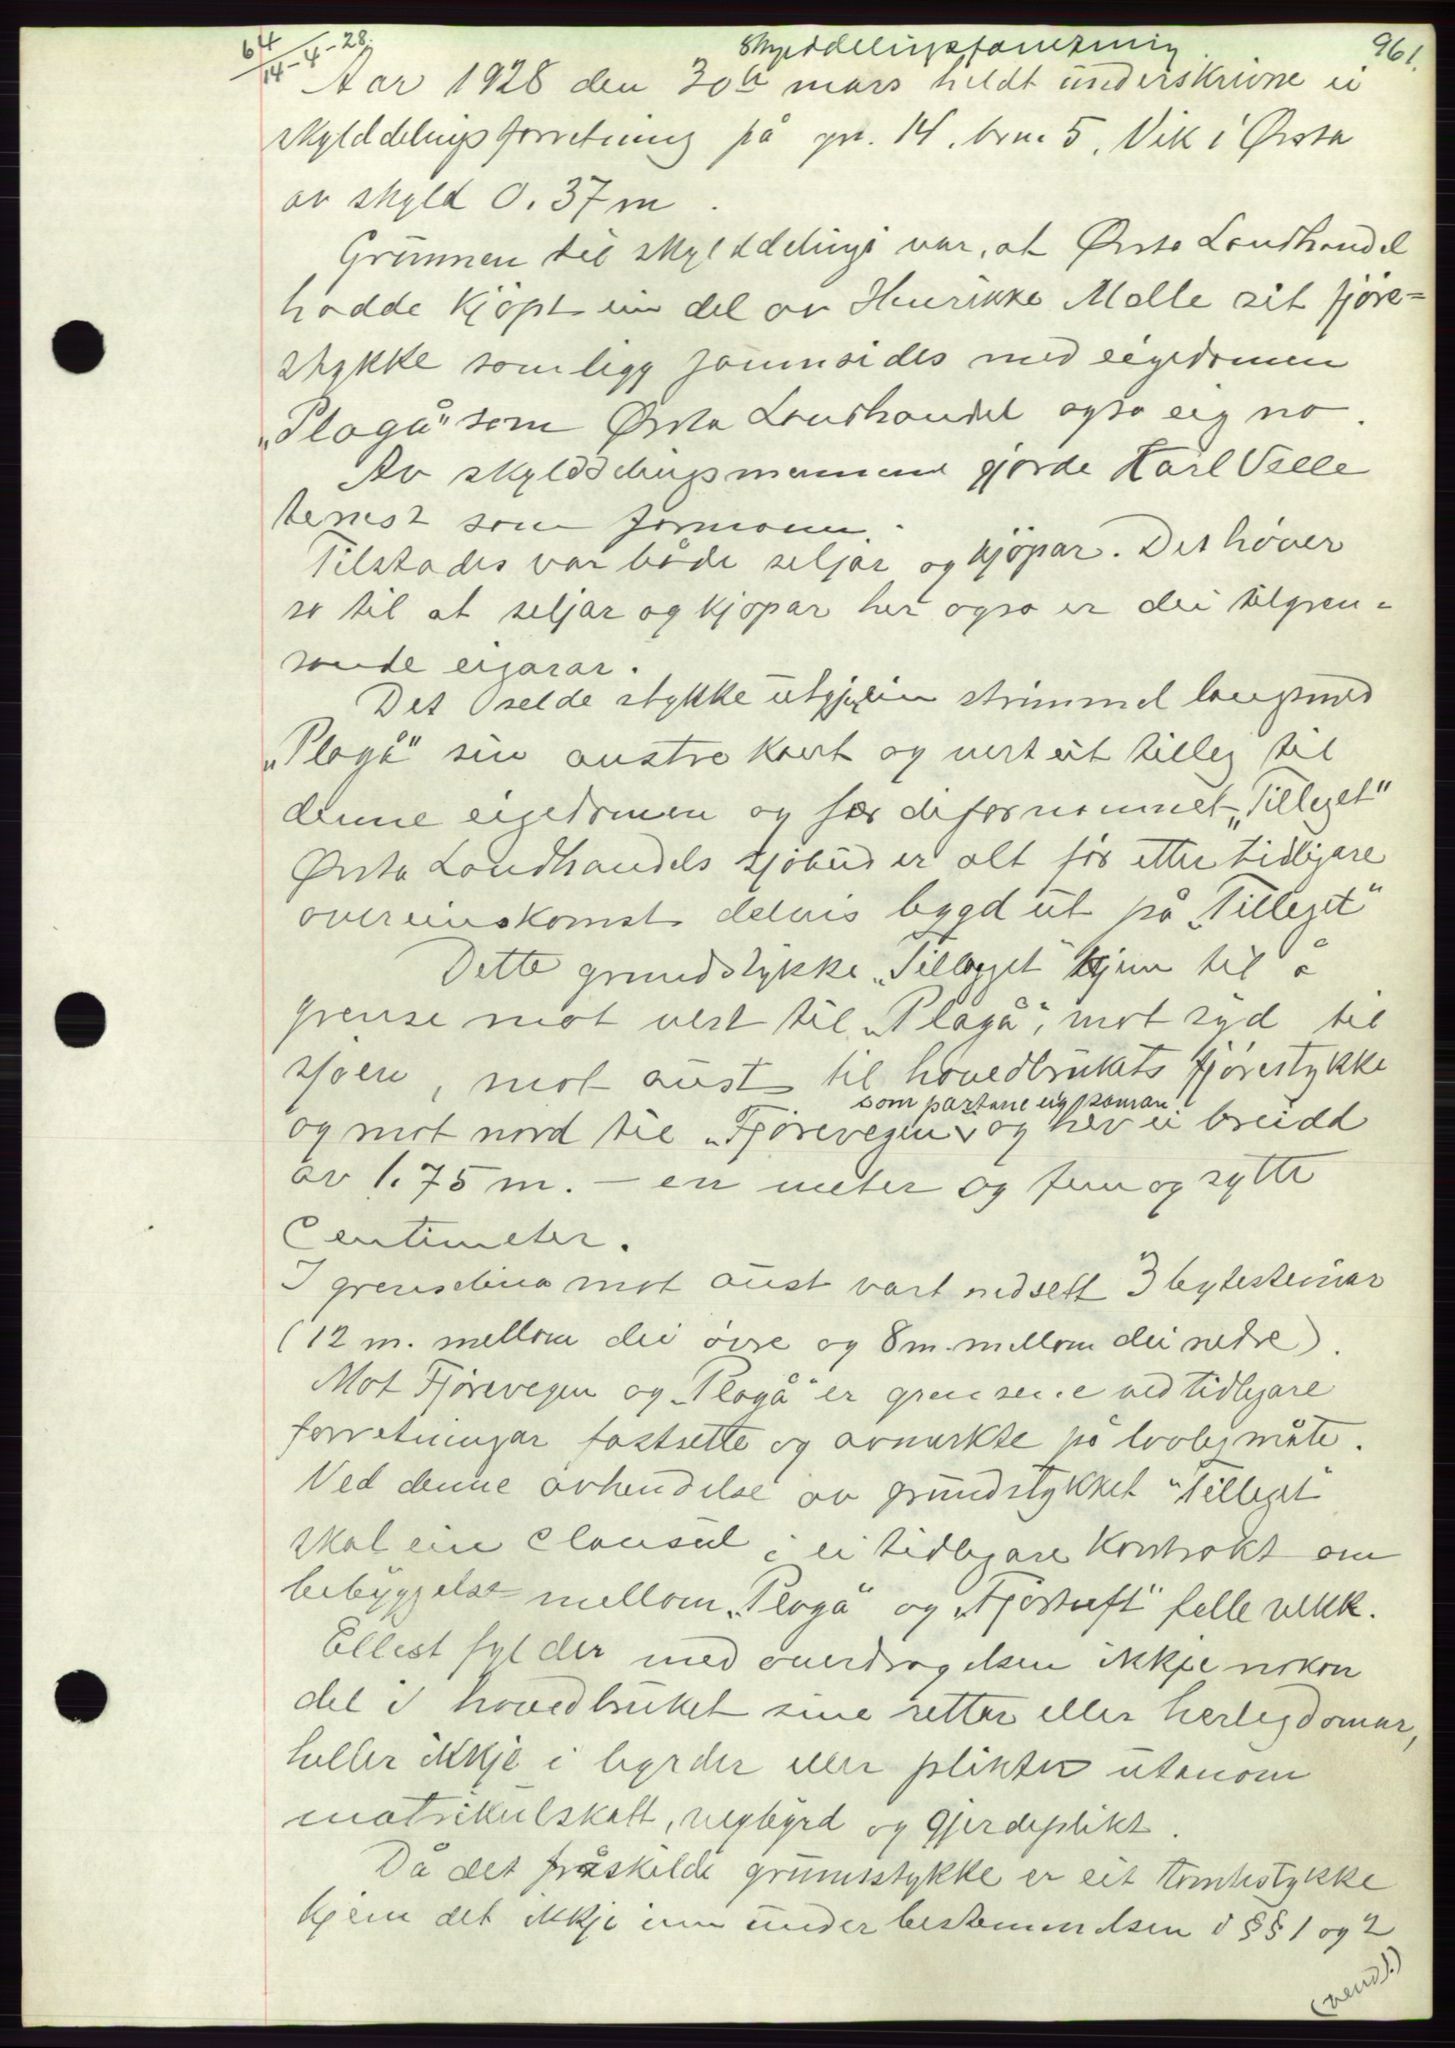 64
14-4-28.
Skylddelingsforretning.
961.
Aar 1928 den 30te mars heldt underskrivne ei
skylddelingsforretning på gn. 14, brn. 5, Vik i Ørsta
av skyld 0.37 m.
Grunnen til skylddelingi var, at Ørsta Landhandel
hadde kjöpt ein del av Henrikke Melle sit fjöre=
stykke som ligg jamnsides med eigedomen
"Plagå" som Ørsta Landhandel ogso eig no.
Av skylddelingsmennene gjorde Karl Velle
tenest som formann.
Tilstades var både seljar og kjöpar. Det höver
so til at seljar og kjöpar her ogso er dei tilgren-
sande eigarar.
Det selde stykke utgjer ein strimmel langsmed
"Plagå" sin austre kant og vert eit tilleg til
denne eigedomen og fær difor namnet "Tilleget"
Ørsta Landhandels sjöbud er alt för etter tidligare
overeinskomst delvis bygd ut på "Tilleget"
Dette grundstykke "Tillegget" kjem til å
grense mot vest til "Plagå", mot syd til
sjøen, mot aust til hovedbrukets fjörestykke
som partane eig saman
og mot nord til "Fjörevegen" og hev ei breidd
av 1.75 m. - en meter og fem og sytti
Centimeter.
I grenselina mot aust vart nedsett 3 bytesteinar
(12 m. mellom dei övre og 8 m. mellom dei nedre).
Mot Fjörevegen og "Plagå" er grensene ved tidlegare
forretningar fastsette og avmerkte på lovleg måte.
Ved denne avhendelse av grundstykket "Tilleget"
skal ein Clausul i ei tidlegare Kontrakt om
bebyggelse mellom "Plagå" og "Fjöstuft" falle vekk.
Ellest fylder med overdragelsen ikkje nokon
del i hovedbruket sine retter eller herlegdomar,
heller ikkje i byrder eller plikter utanom
matrikulskatt, vegbyrd og gjerdeplikt.
Då det fråskilde grunnstykke er eit tomtestykke
kjem det ikkje inn under bestemmelsen i §§ 1 og 2
(vend!)